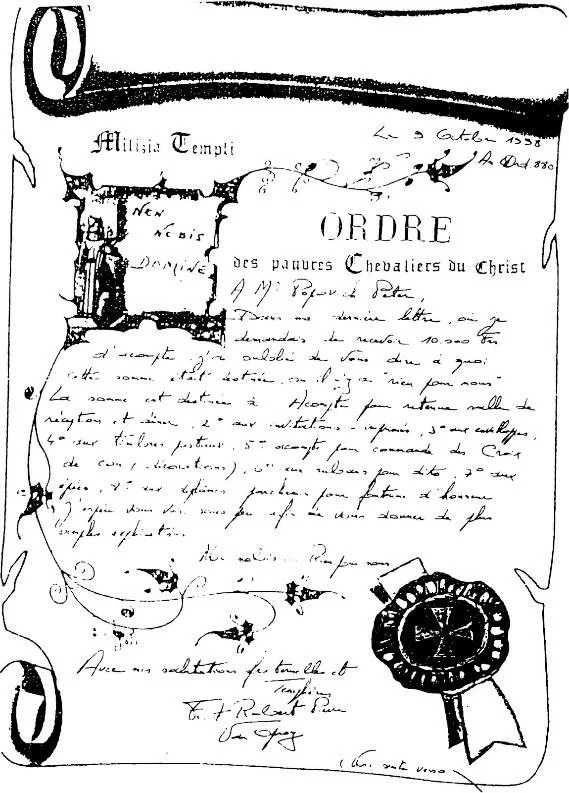 Le 9 Octobre 1998
Militia Templi
An Ord. 880
NON
NOBIS
DOMINE
ORDRE
des pauvres Chevaliers du Christ
A Mr Peter,
Dans ma dernière lettre, où je
demandais de recevoir 10.000 frs
d'acompte, j'ai oublié de vous dire à quoi
cette somme était destinée, ou il y a "rien pour nous"
La somme est destinée à Acompte pour retenue salle de
réception et dîner, 2° aux invitations - imprimés, 3° aux enveloppes,
4° aux timbres postaux, 5° acompte pour commande des Croix
de cou (décorations), 6° aux rubans pour dito, 7° aux
8° aux diplômes pour d'honneur
J'espère vous voir sous peu afin de vous donner de plus
amples explications.
Non nobis... Rien pour nous
Avec mes salutations fraternelles et
Templières
Fr. + Robert
(Voir suite verso)